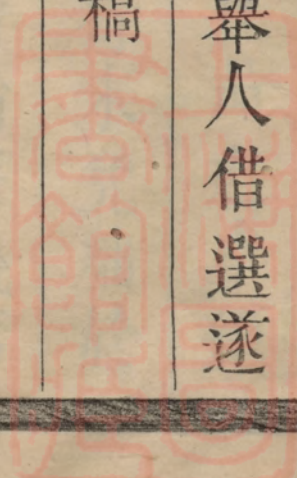 舉人借選遂
稿